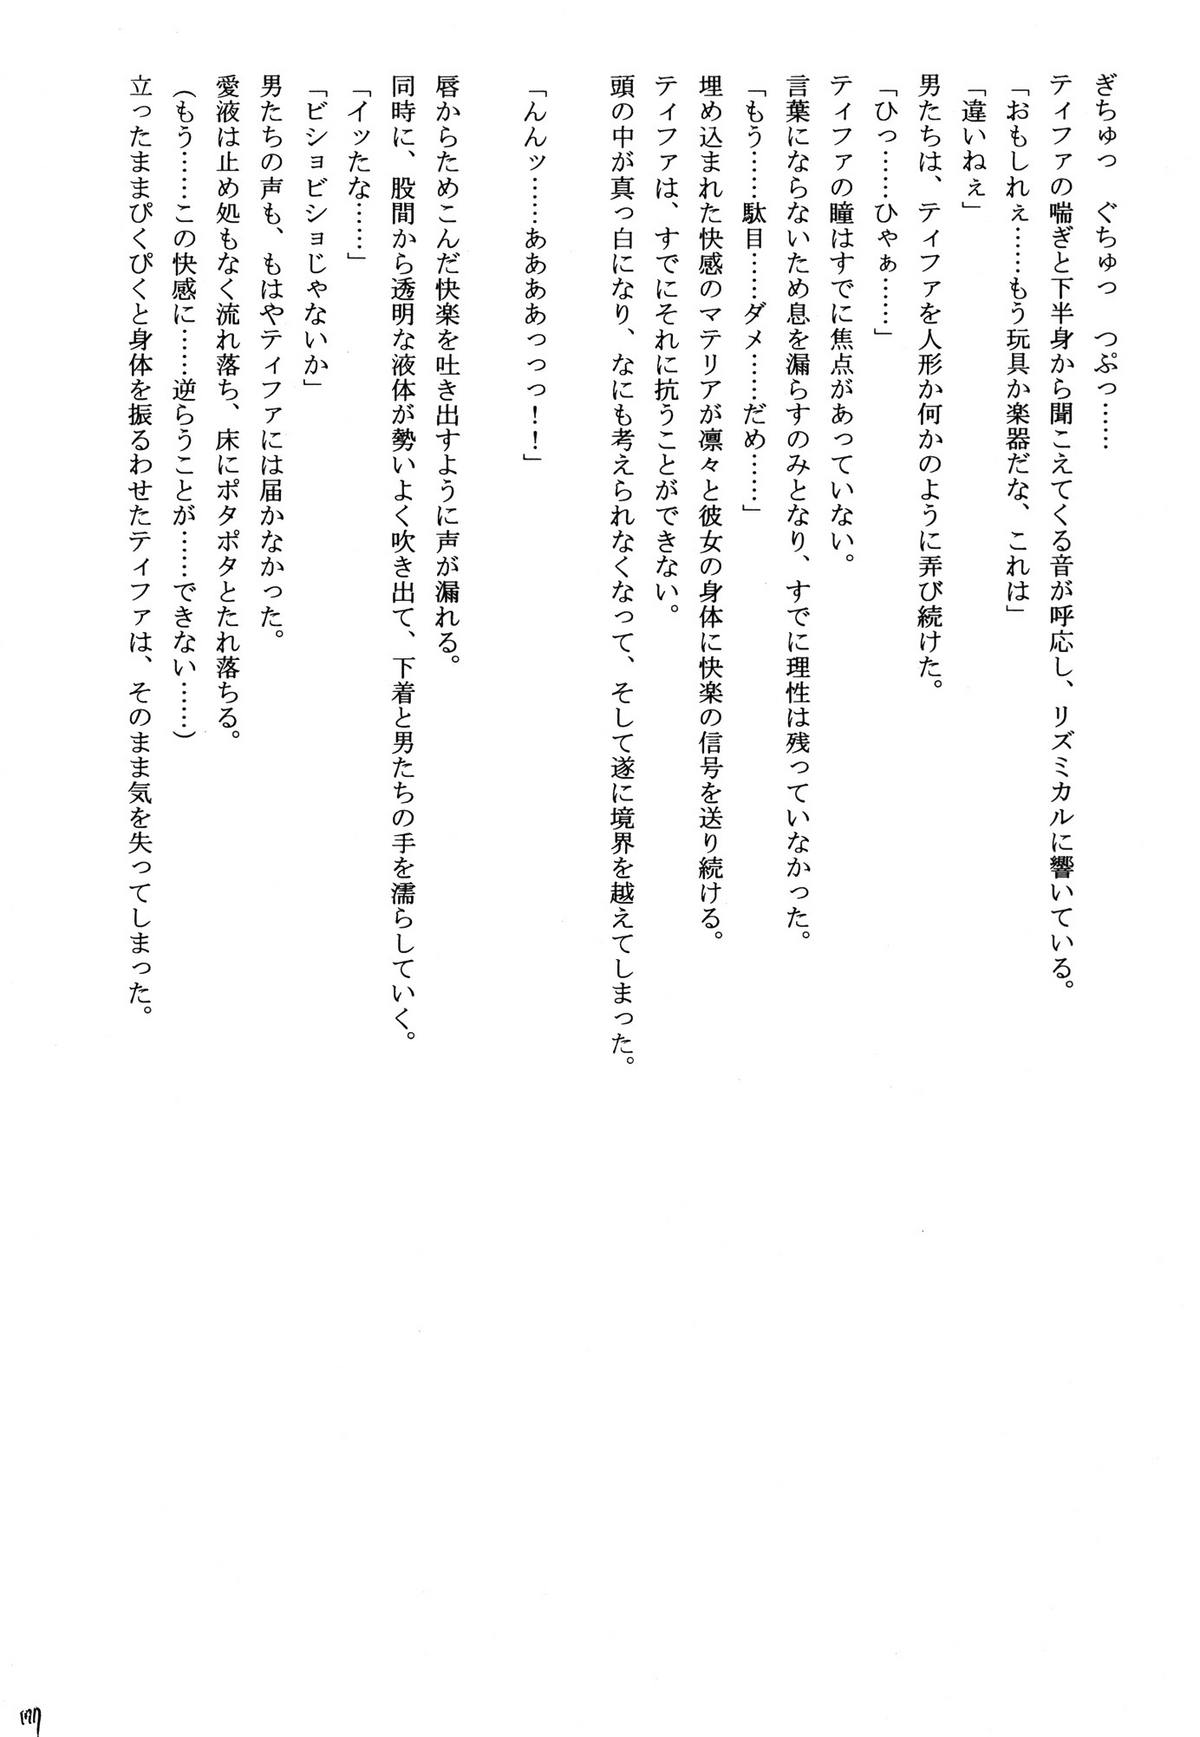 ぎちゅっ　ぐちゅっ　つぷっ……
ティファの喘ぎと下半身から聞こえてくる音が呼応し、リズミカルに響いている。
「おもしれぇ……もう玩具か楽器だな、これは」
「違いねぇ」
男たちは、ティファを人形か何かのように弄び続けた。
「ひっ……ひゃぁ……」
ティファの瞳はすでに焦点があっていない。
言葉にならないため息を漏らすのみとなり、すでに理性は残っていなかった。
「もう……駄目……ダメ……だめ……」
埋め込まれた快感のマテリアが凛々と彼女の身体に快楽の信号を送り続ける。
ティファは、すでにそれに抗うことができない。
頭の中が真っ白になり、なにも考えられなくなって、そして遂に境界を越えてしまった。
「んんッ……ああああっっっ！！」
唇からためこんだ快楽を吐き出すように声が漏れる。
同時に、股間から透明な液体が勢いよく吹き出て、下着と男たちの手を濡らしていく。
「イッたな……」
「ビショビショじゃないか」
男たちの声も、もはやティファには届かなかった。
愛液は止め処もなく流れ落ち、床にポタポタとたれ落ちる。
（もう……この快感に……逆らうことが……できない……）
立ったままぴくぴくと身体を振るわせたティファは、そのまま気を失ってしまった。